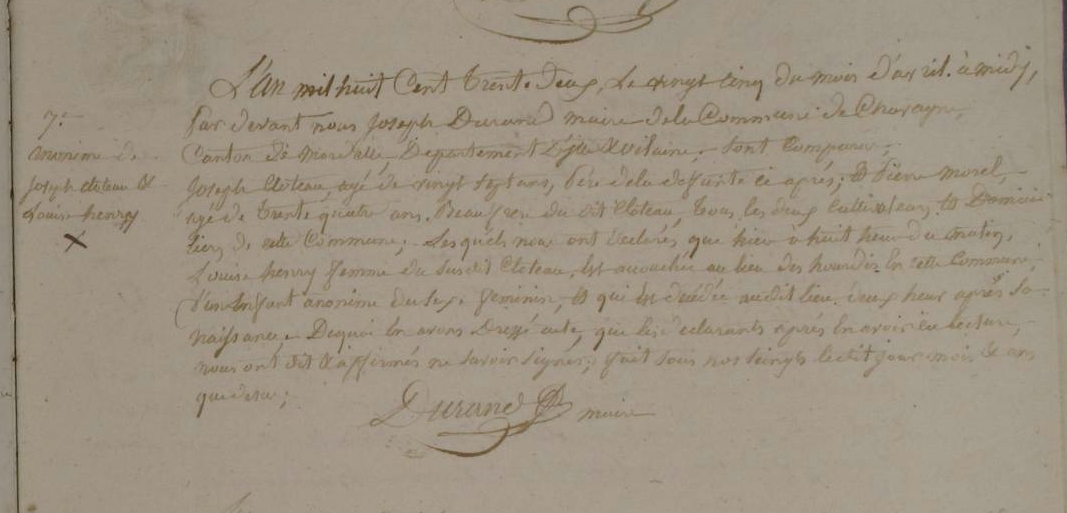 L'an mil huit Cent trente deux, Le vingt cinq du mois d'avril. à midy,
7e
par devant nous joseph Durand maire dela Commune de Chavagne,
anonime de
Canton de mordelle Departement D'jlle & vilaine, Sont Comparus,
joseph cloteau &
joseph Cloteau, agé de vingt sept ans, père dela deffunte ci après; & pierre morel,
Louise henry
age de trente quatre ans, Beaufrere du dit Cloteau, tous les deux Cultivateurs & Domici
X
liers de cette Commune; Lesquels nous ont declarés que hier à huit heur du matin,
Louise henry femme du susdit Cloteau, Est accouchée au lieu des hourdis En cette Commune,
D'un Enfant anonime du sexe feminin, & qui Est décédée audit lieu deux heur après sa
naissance. Dequoi En avons Dressé acte, que les declarants après En avoir eu lecture,
nous ont dit & affirmés ne savoir signer; fait sous nos seings ledit jour mois & ans
que dessu;
Durand maire